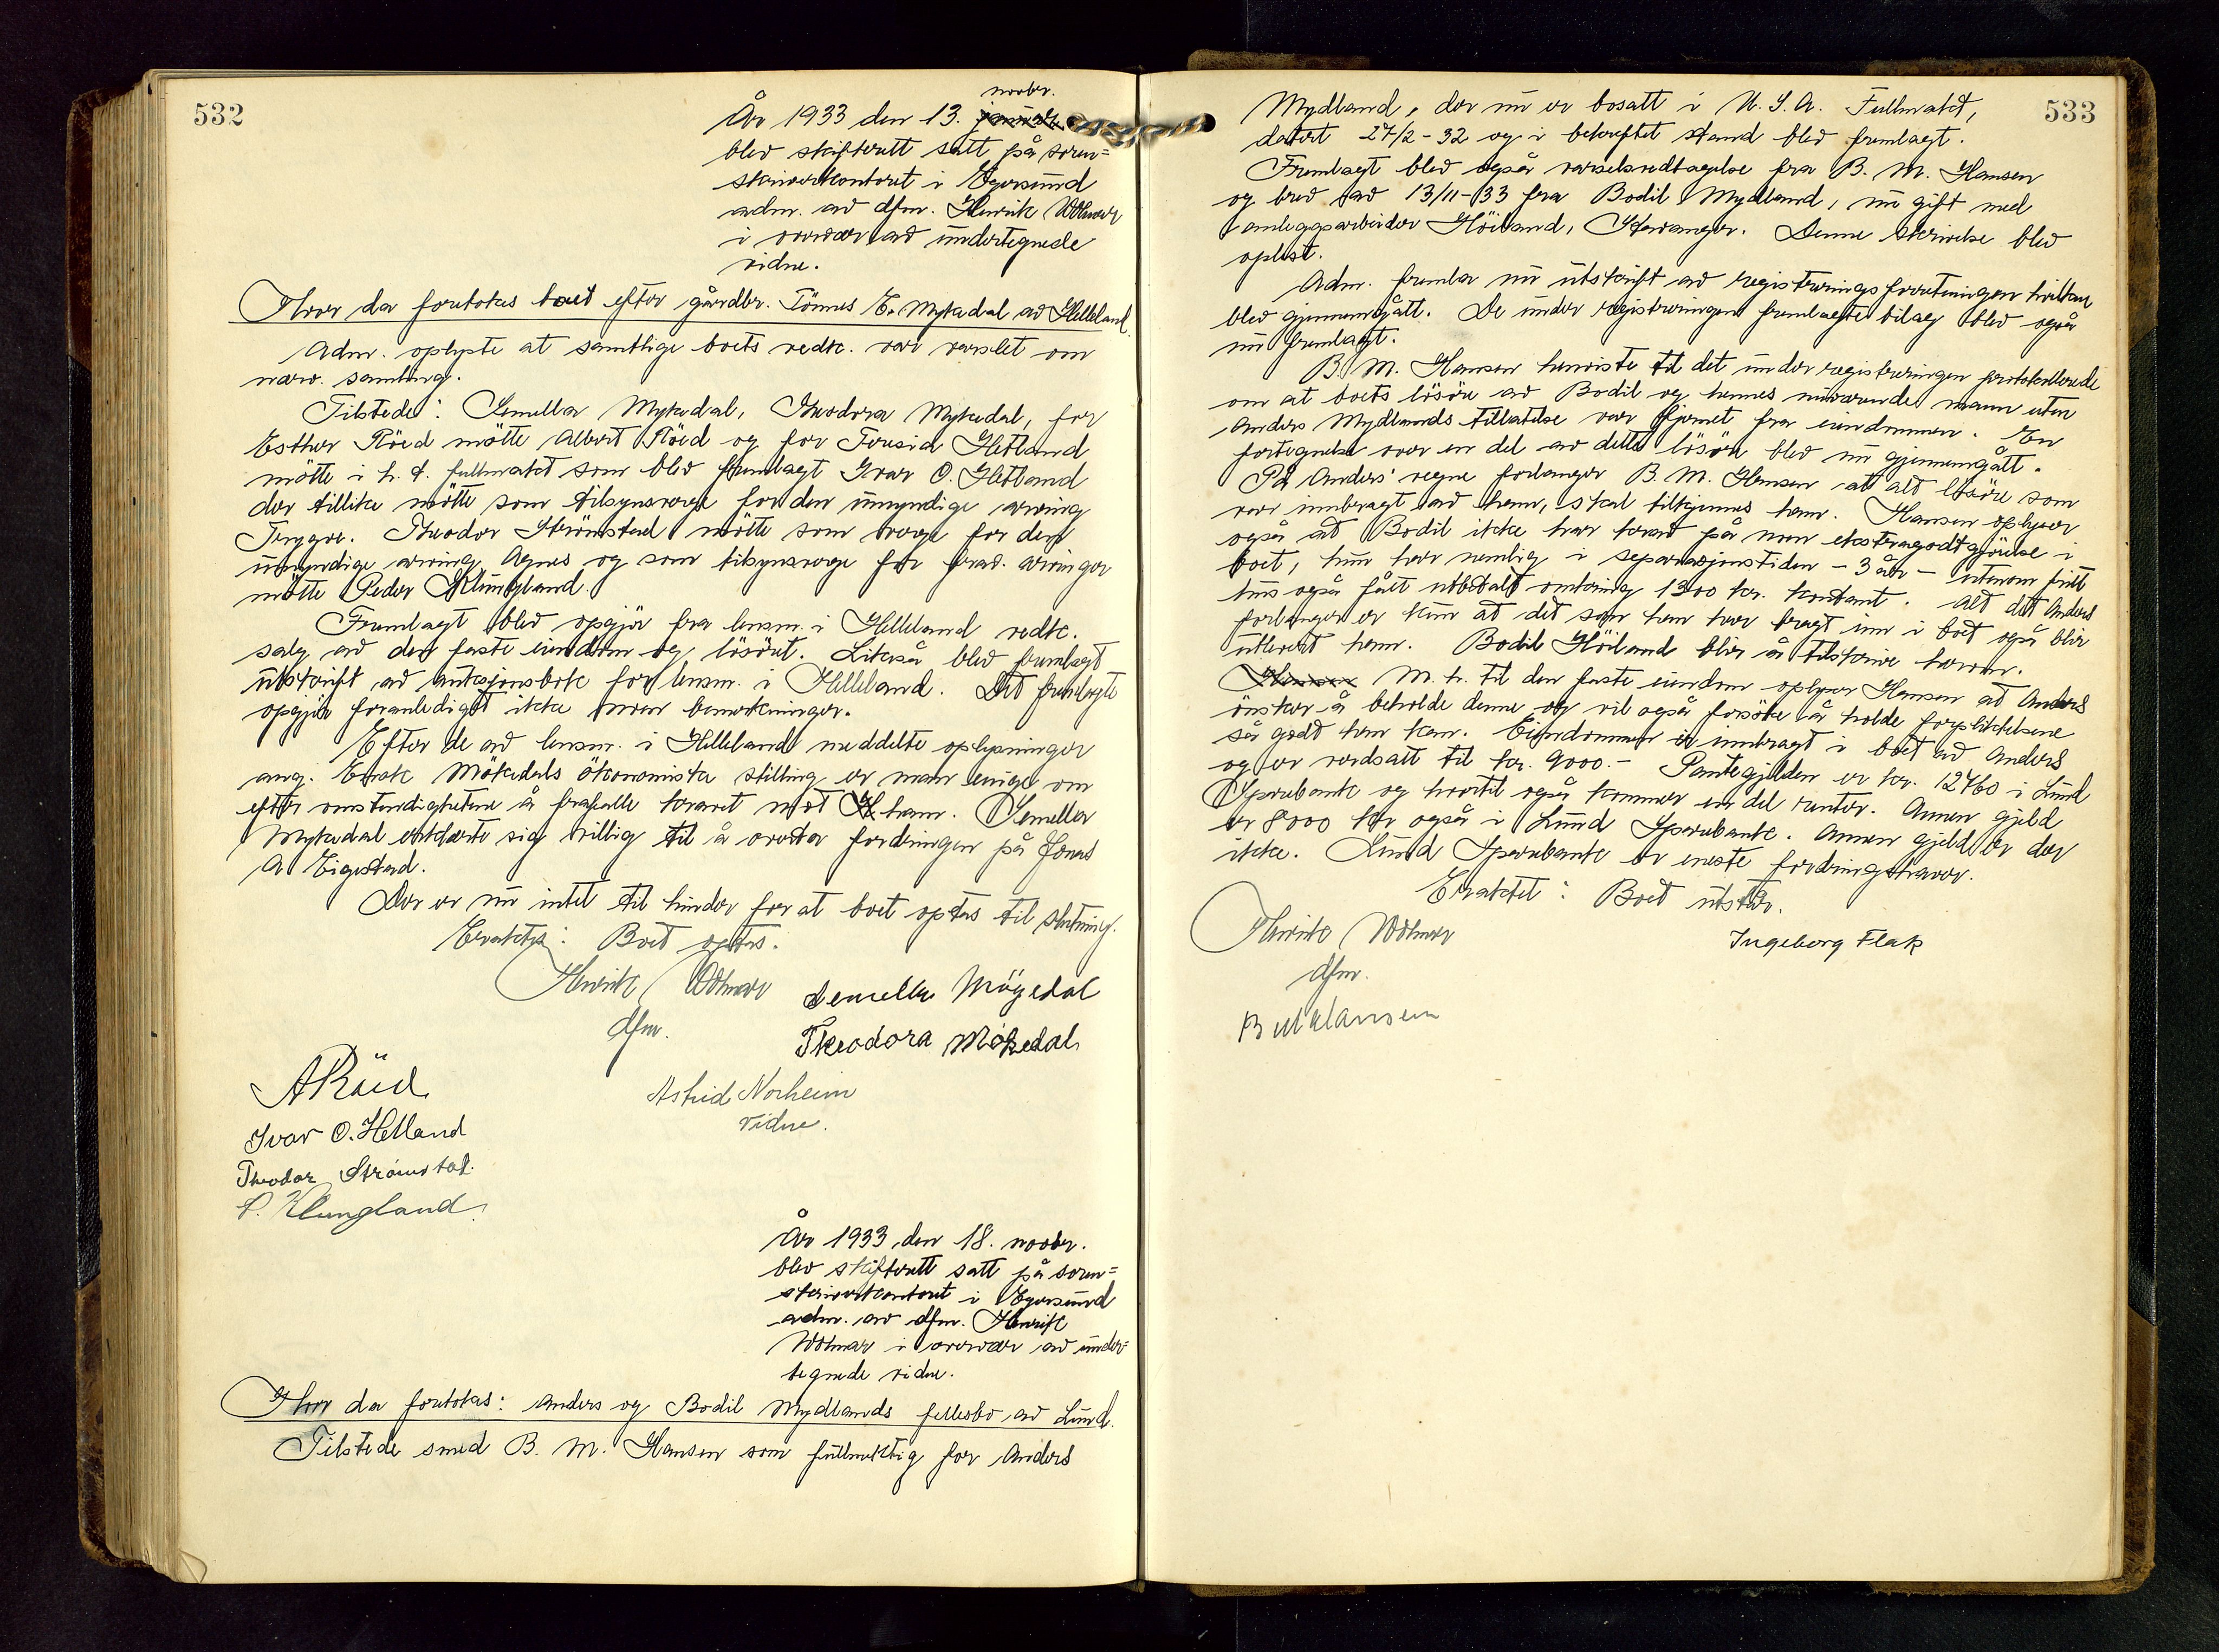 532
novbr.
År 1933 den 13. januar
blev skifterett satt på soren-
skriverkontoret i Egersund
adm. av dfm. Henrik Wolmar
i overvær av undertegnede
vidne.
Hvor da foretokes boet efter gårdbr. Tönnes E. Mykedal av Helleland.
Adm. oplyste at samtlige boets vedk. var varslet om
nærv. samling.
Tilstede: Semella Mykedal, Theodora Mykedal, for
Esther Röed mötte Albert Röed og for Torsid Hetland
mötte i h. t. fullmakt som blev fremlagt Ivar O. Hetland
der tillike mötte som tilsynsverge for den umyndige arving
Trygve. Theodor Strömstad mötte som verge for den
umyndige arving Agnes og som tilsynsverge for fravær. arvinger
mötte Peder Klungland.
Fremlagt blev opgjör fra lensm. i Helleland vedk.
salg av den faste eiendom og lösöret. Likeså blev fremlagt
utskrift av auksjonsbok for lensm. i Helleland. Det fremlagte
opgjör foranlediget ikke noen bemerkninger.
Efter de av lensm. i Helleland meddelte oplysninger
ang. Enok Mökedals ökonomiske stilling er man enige om
efter omstendighetene å frafalle kravet mot H ham. Semella
Mykedal erklærte sig villig til å overta fordringen på Jonas
A Eigestad.
Der er nu intet til hinder for at boet optas til slutning.
Eraktes: Boet optas.
Henrik Wolmar
dfm.
Semella Mögedal
Theodora Mökedal
A Röed
Astrid Norheim
vidne.
Ivar O. Hetland
Theodor Strömstad.
P. Klungland.
År 1933 den 18. novbr.
blev skifterett satt på soren-
skriverkontoret i Egersund
adm. av dfm. Henrik
Wolmar i overvær av under-
tegnede vidne.
Hvor da foretokes: Anders og Bodil Mydlands fellesbo av Lund.
Tilstede smed B. M. Hansen som fullmektig for Anders
533
Mydland, der nu er bosatt i U. S. A. Fullmakt,
datert 27/2 - 32 og i bekreftet stand blev fremlagt.
Fremlagt blev også varselsvedtagelse fra B. M. Hansen
og brev av 13/11-33 fra Bodil Mydland, nu gift med
anleggsarbeider Höiland, Stavanger. Denne skrivelse blev
oplest.
Adm. fremla nu utskrift av registreringsforretningen hvilken
blev gjennemgått. De under registreringen fremlagte bilag blev også
nu fremlagt.
B. M. Hansen henviste til det under registreringen protokollerede
om at boets lösöre av Bodil og hennes nuværende mann uten
Anders Mydlands tillatelse var fjernet fra eiendommen. En
fortegnelse over en del av dette lösöre blev nu gjennemgått.
På Anders' vegne forlanger B. M. Hansen at alt lösöre som
var innbragt av ham, skal tilkjennes ham. Hansen oplyser
også at Bodil ikke har krav på noen ekstragodtgjörelse i
boet, hun har nemlig i separasjonstiden - 3 år - utenom fritt
hus også fått utbetalt omkring 1300 kr. kontant. Alt det Anders
forlanger er kun at det som han har bragt inn i boet også blir
utlevert ham. Bodil Höiland blir å tilskrive herom.
Hansen M. h. til den faste eiendom oplyser Hansen at Anders
önsker å beholde denne og vil også forsöke å holde forpliktelsene
så godt han kan. Eiendommen er innbragt i boet av Anders
og er verdsatt til kr. 9000.- Pantegjelden er kr. 12760 i Lund
Sparebank og hvortil også kommer en del renter. Annen gjeld
er 8000 kr også i Lund Sparebank. Annen gjeld er der
ikke. Lund Sparebank er eneste fordringshaver.
Eraktet: Boet utstår.
Henrik Wolmar
dfm.
Ingeborg Flak
B M Hansen